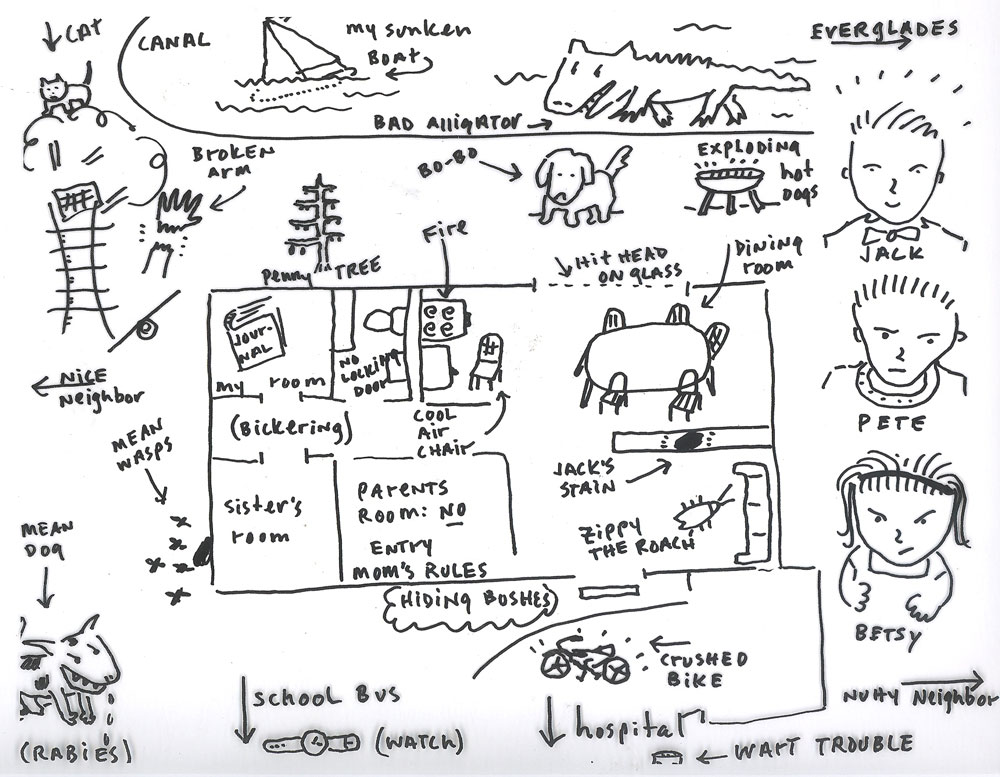 CAT
CANAL
my sunken
Boat
EVERGLADES
BAD Alligator
BROKEN
ARM
BO-BO
EXPLODING
hot
DOGS
JACK
Fire
Penny TREE
Hit HEAD
ON GLASS
DINING
room
JOUR-
NAL
my room
NO
LOCKING
DOOR
NiCE
Neighbor
(Bickering)
COOL
AIR
CHAIR
PETE
MEAN
WASPS
JACK'S
STAIN
PARENTS
ROOM: NO
ENTRY
MOM'S RULES
sister's
room
ZIPPY
THE ROACH
MEAN
DOG
HIDING BUSHES
BETSY
CRUSHED
BIKE
NUTTY Neighbor
SCHOOL BUS
(WATCH)
hospital
WART TROUBLE
(RABIES)